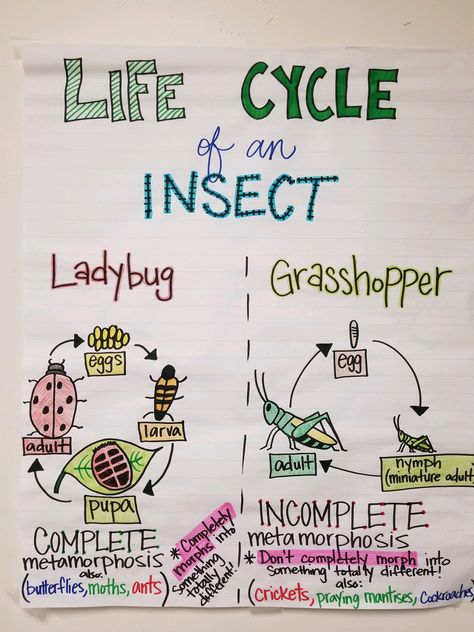 LIFE CYCLE
of an
INSECT
Ladybug
eggs
larva
pupa
adult
COMPLETE
metamorphosis
also:
(butterflies, moths, ants)
* Completely
morphs into
something
totally
different!
Grasshopper
egg
nymph
(miniature adult)
adult
INCOMPLETE
metamorphosis
* Don't completely morph into
something totally different!
also:
(crickets, praying mantises, cockroaches,